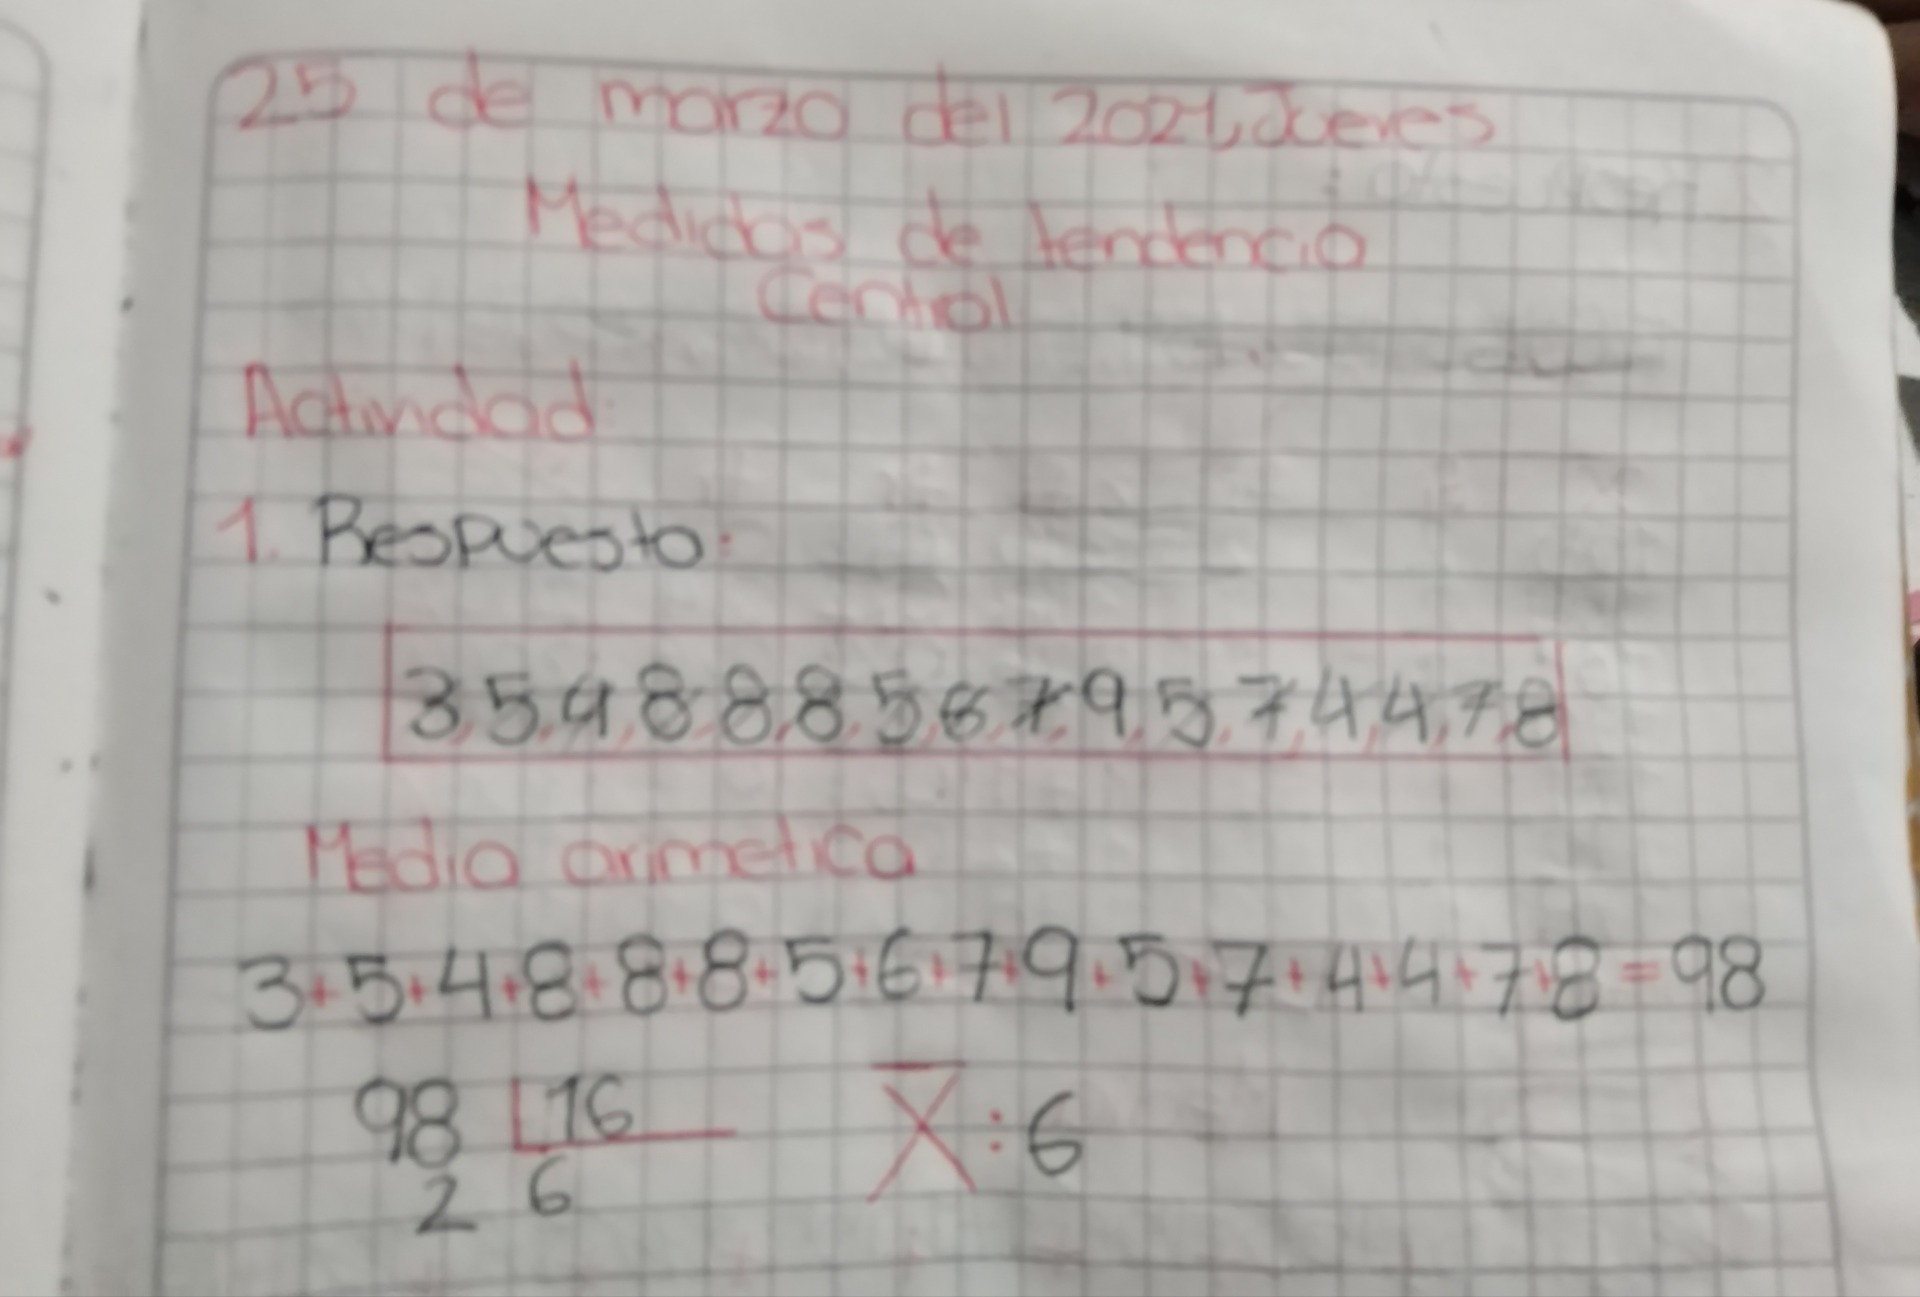 25 de marzo del 2021, Jueves
Medidas de tendencia
Central
Actividad:
1. Respuesta:
3,5,4,8,8,8,5,6,7,9,5,7,4,4,7,8
Media arimetica
3+5+4+8+8+8+5+6+7+9+5+7+4+4+7+8=98
98 16 X̅:6
2 6